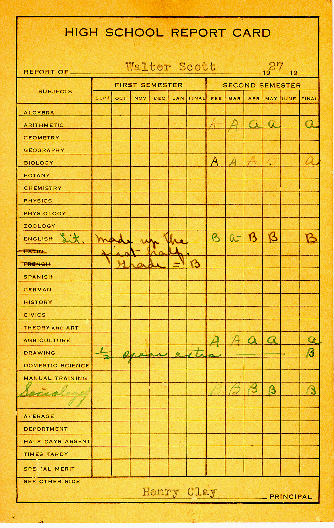 HIGH SCHOOL REPORT CARD
REPORT OF Walter Scott 1927 19
SUBJECTS FIRST SEMESTER SECOND SEMESTER
SEPT OCT NOV DEC JAN FINAL FEB MAR APR MAY JUNE FINAL
ALGEBRA
ARITHMETIC A A a a a
GEOMETRY
GEOGRAPHY
BIOLOGY A A A a
BOTANY
CHEMISTRY
PHYSICS
PHYSIOLOGY
ZOOLOGY
ENGLISH Lit. made up the B a- B B B
LATIN first half.
FRENCH Grade = B
SPANISH
GERMAN
HISTORY
CIVICS
THEORY AND ART
AGRICULTURE A A a a a
DRAWING 1/2 extra B
DOMESTIC SCIENCE
MANUAL TRAINING
Sociology B B B B
AVERAGE
DEPORTMENT
HALF DAYS ABSENT
TIMES TARDY
SPECIAL MERIT
SEE OTHER SIDE
Henry Clay PRINCIPAL